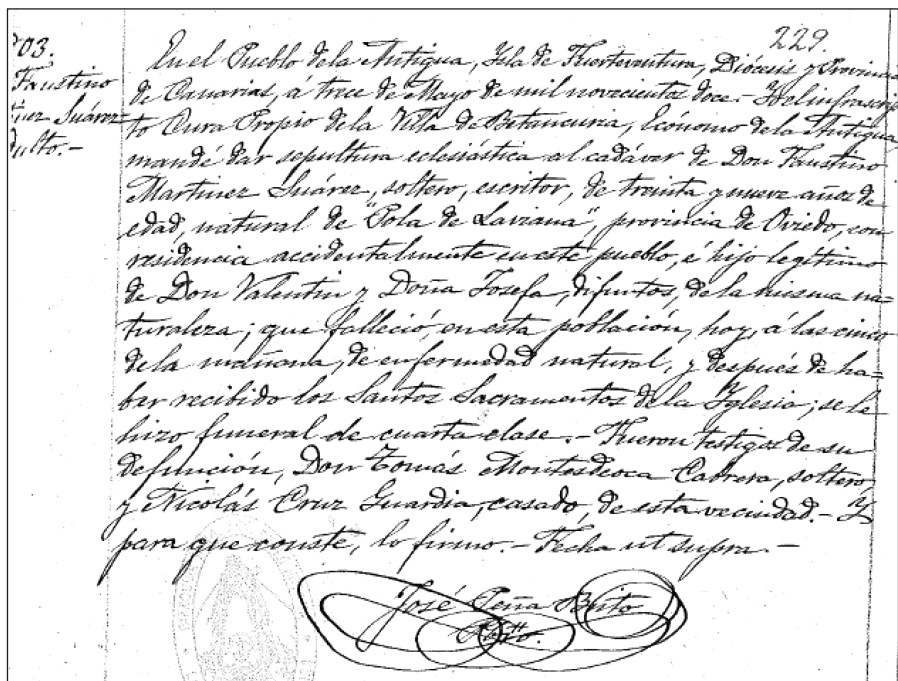 229.
03.
Faustino
nez Suárez
dulto.-
En el Pueblo de la Antigua, Isla de Fuerteventura, Diócesis y Provincia
de Canarias, á trece de Mayo de mil novecientos doce.- Yo el infrascrip
to Cura Propio de la Villa de Betancuria, Ecónomo de la Antigua
mandé dar sepultura eclesiástica al cadáver de Don Faustino
Martinez Suárez, soltero, escritor, de treinta y nueve años de
edad, natural de "Pola de Laviana", provincia de Oviedo, con
residencia accidentalmente en este pueblo, é hijo legítimo
de Don Valentin y Doña Josefa, difuntos, de la misma na=
turaleza; que falleció, en esta población, hoy, á las cinco
de la mañana, de enfermedad natural, y después de ha=
ber recibido los Santos Sacramentos de la Iglesia; se le
hizo funeral de cuarta clase.- Fueron testigos de su
defunción, Don Tomás Montesdeoca Cabrera, soltero,
y Nicolás Cruz Guardia, casado, de esta vecindad.- Y
para que conste, lo firmo.- Fecha ut supra.-
José Peña Brito